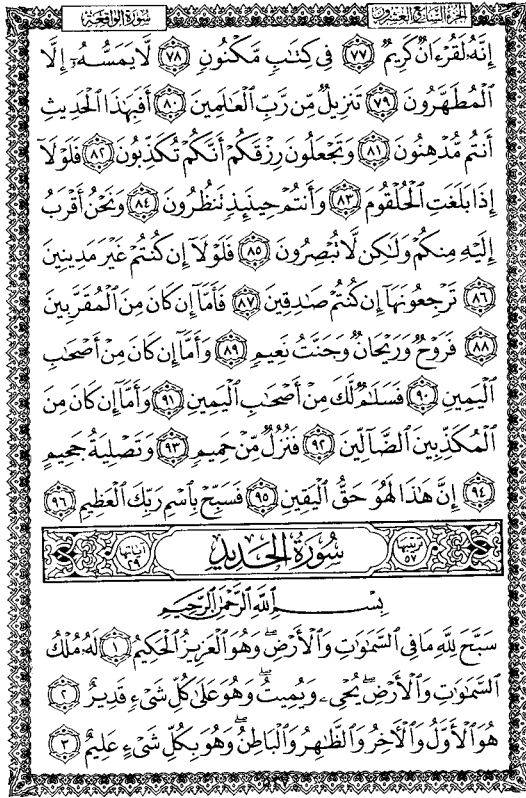 الجزء السابع والعشرون
سورة الواقعة
إِنَّهُۥ لَقُرْءَانٌ كَرِيمٌ ٧٧ فِى كِتَٰبٍ مَّكْنُونٍ ٧٨ لَّا يَمَسُّهُۥٓ إِلَّا
ٱلْمُطَهَّرُونَ ٧٩ تَنزِيلٌ مِّن رَّبِّ ٱلْعَٰلَمِينَ ٨٠ أَفَبِهَٰذَا ٱلْحَدِيثِ
أَنتُم مُّدْهِنُونَ ٨١ وَتَجْعَلُونَ رِزْقَكُمْ أَنَّكُمْ تُكَذِّبُونَ ٨٢ فَلَوْلَآ
إِذَا بَلَغَتِ ٱلْحُلْقُومَ ٨٣ وَأَنتُمْ حِينَئِذٍ تَنظُرُونَ ٨٤ وَنَحْنُ أَقْرَبُ
إِلَيْهِ مِنكُمْ وَلَٰكِن لَّا تُبْصِرُونَ ٨٥ فَلَوْلَآ إِن كُنتُمْ غَيْرَ مَدِينِينَ
٨٦ تَرْجِعُونَهَآ إِن كُنتُمْ صَٰدِقِينَ ٨٧ فَأَمَّآ إِن كَانَ مِنَ ٱلْمُقَرَّبِينَ
٨٨ فَرَوْحٌ وَرَيْحَانٌ وَجَنَّتُ نَعِيمٍ ٨٩ وَأَمَّآ إِن كَانَ مِنْ أَصْحَٰبِ
ٱلْيَمِينِ ٩٠ فَسَلَٰمٌ لَّكَ مِنْ أَصْحَٰبِ ٱلْيَمِينِ ٩١ وَأَمَّآ إِن كَانَ مِنَ
ٱلْمُكَذِّبِينَ ٱلضَّآلِّينَ ٩٢ فَنُزُلٌ مِّنْ حَمِيمٍ ٩٣ وَتَصْلِيَةُ جَحِيمٍ
٩٤ إِنَّ هَٰذَا لَهُوَ حَقُّ ٱلْيَقِينِ ٩٥ فَسَبِّحْ بِٱسْمِ رَبِّكَ ٱلْعَظِيمِ ٩٦
ترتيبها ٥٧ سُورَةُ الحَدِيدِ آياتها ٢٩
بِسْمِ ٱللَّهِ ٱلرَّحْمَٰنِ ٱلرَّحِيمِ
سَبَّحَ لِلَّهِ مَا فِى ٱلسَّمَٰوَٰتِ وَٱلْأَرْضِ ۖ وَهُوَ ٱلْعَزِيزُ ٱلْحَكِيمُ ١ لَهُۥ مُلْكُ
ٱلسَّمَٰوَٰتِ وَٱلْأَرْضِ ۖ يُحْىِۦ وَيُمِيتُ ۖ وَهُوَ عَلَىٰ كُلِّ شَىْءٍ قَدِيرٌ ٢
هُوَ ٱلْأَوَّلُ وَٱلْءَاخِرُ وَٱلظَّٰهِرُ وَٱلْبَاطِنُ ۖ وَهُوَ بِكُلِّ شَىْءٍ عَلِيمٌ ٣